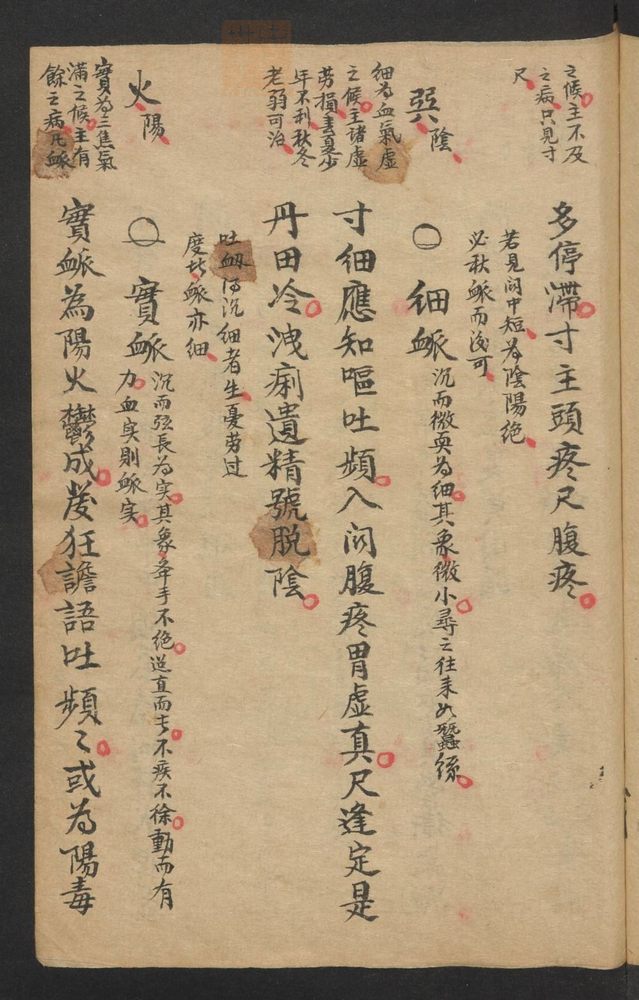 之候主不及
之病只見寸
尺
多停滯寸主頭疼尺腹疼
若見関中短為陰陽絶
必秋脈而後可
巽陰
細為血氣虛
之候主諸虛
劳損春夏少
年不利秋冬
老弱可治
○細脈沉而微耎為細其象微小尋之往来如蠶絲
寸細應知嘔吐頻入関腹疼胃虛真尺逢定是
丹田冷洩痢遺精號脱陰
吐衂得沉細者生憂劳过
度者脈亦细
火陽
實為三焦氣
滿之候主有
餘之病凡脈
○實脈沉而弦長為实其象牽手不絶迢直而去不疾不徐動而有
力血实則脈实
實脈為陽火鬱成發狂譫語吐頻〻或為陽毒